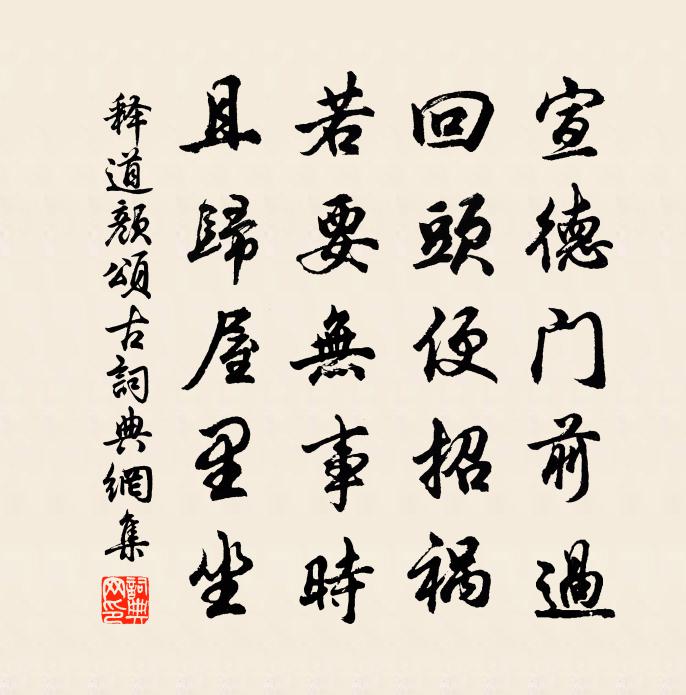 宣德门前過
回頭便招禍
若要無事時
且歸屋里坐
释道顏頌古詞典網集
詞典網印